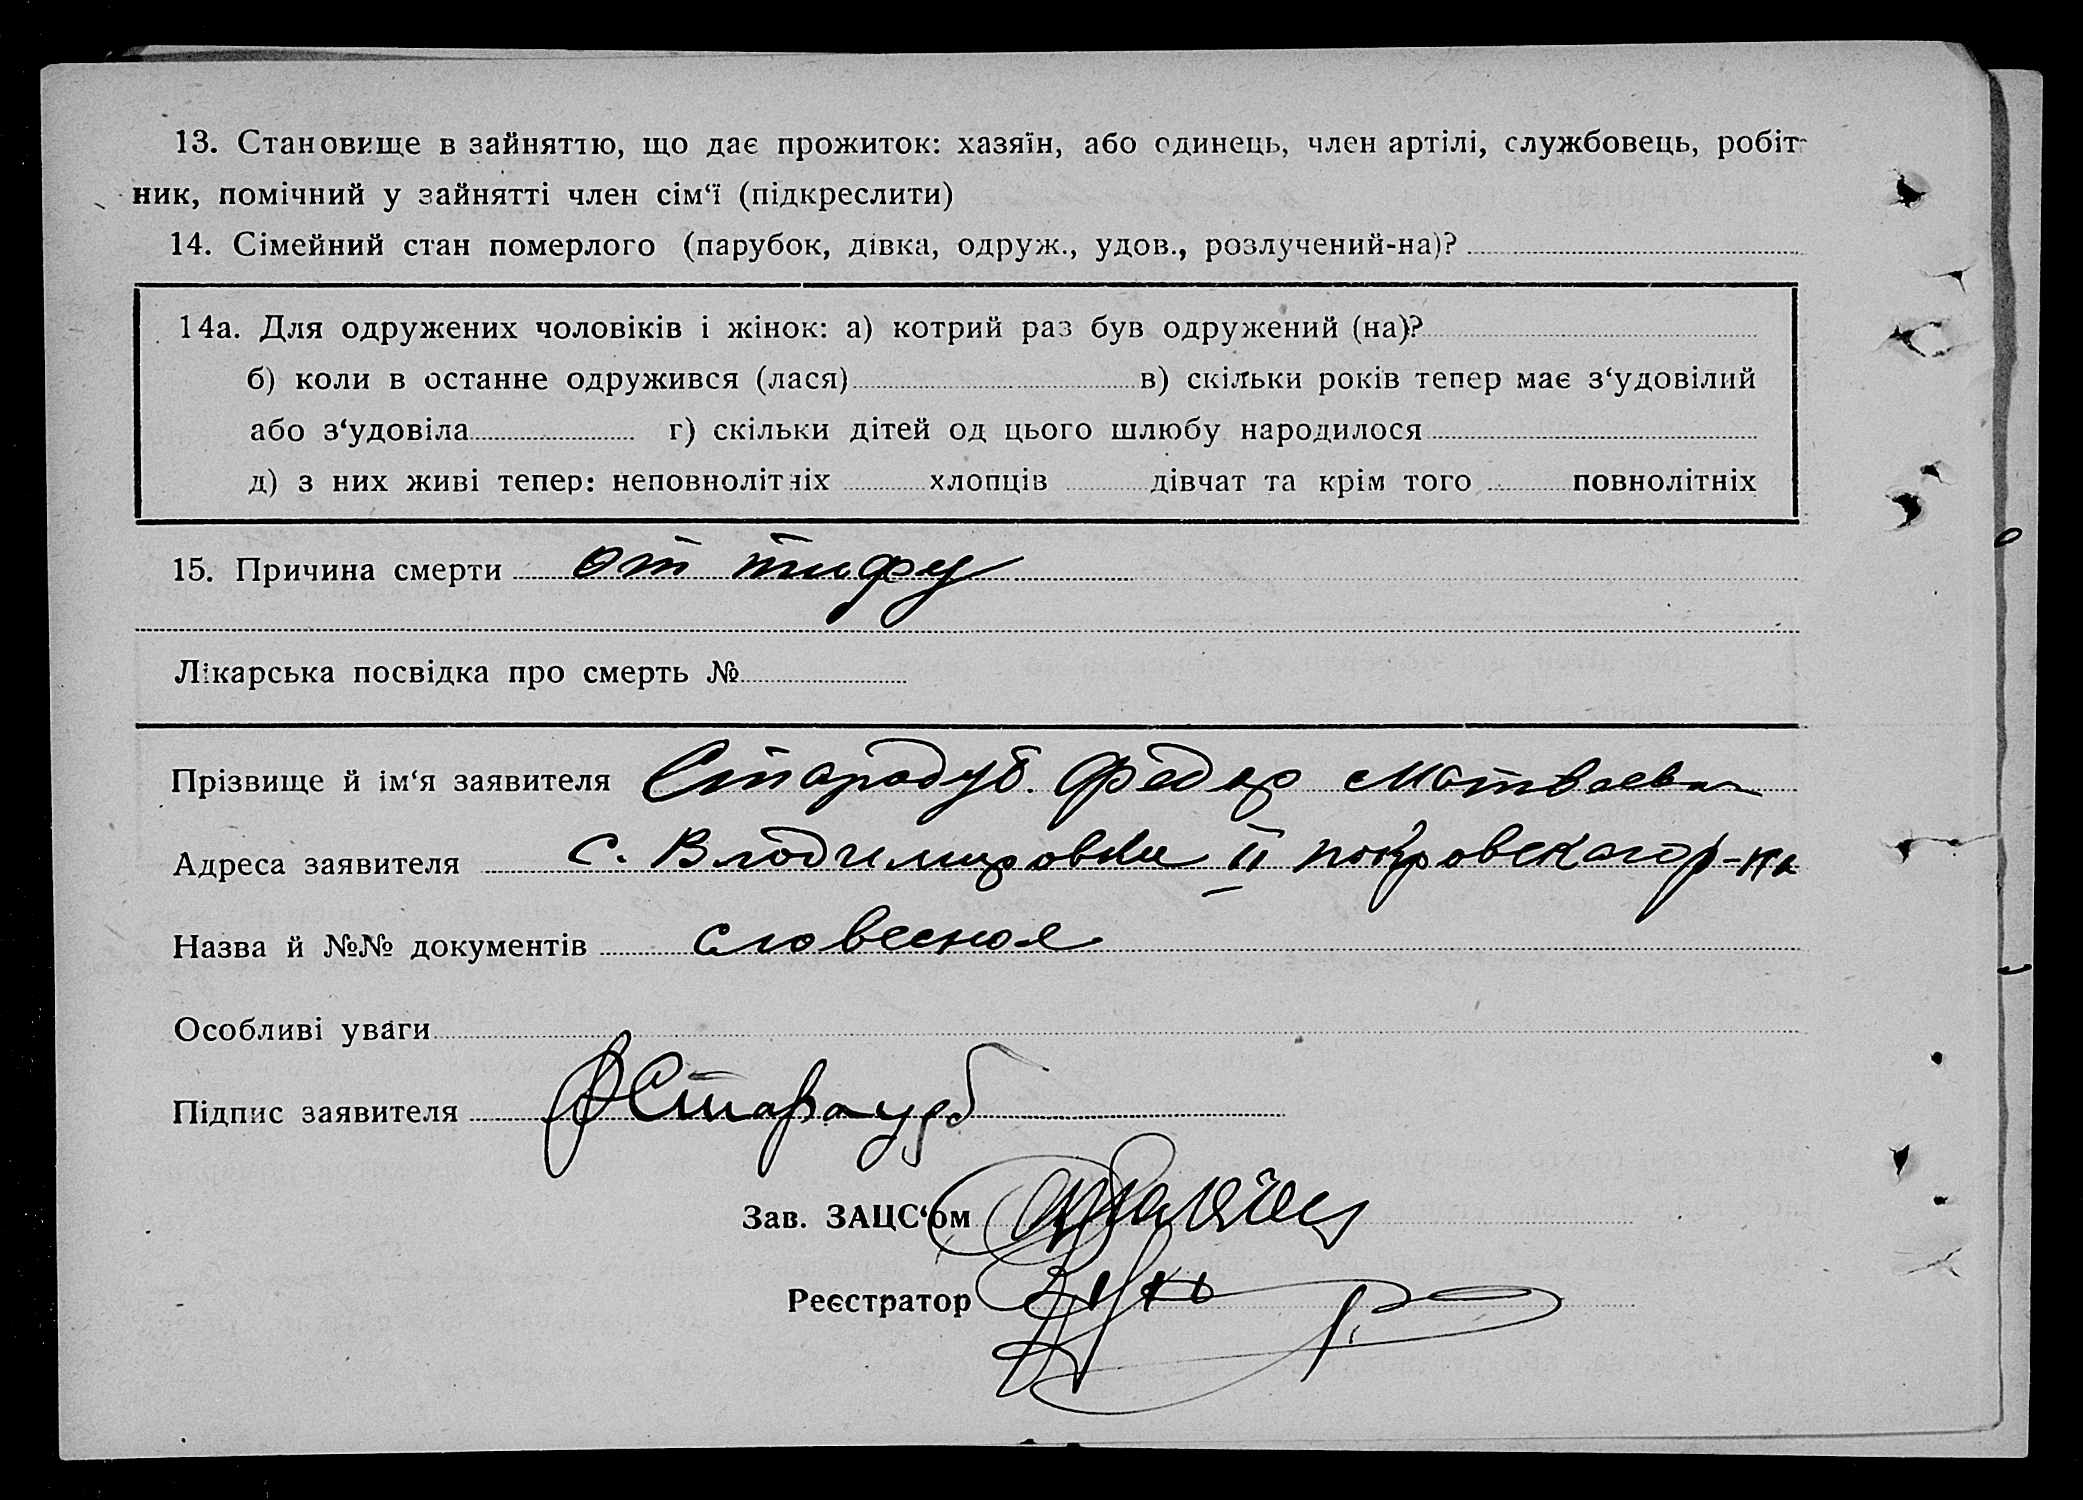 13. Становище в зайняттю, що дає прожиток: хазяїн, або одинець, член артілі, службовець, робіт-
ник, помічний у зайнятті член сім‘ї (підкреслити)
14. Сімейний стан померлого (парубок, дівка, одруж., удов., розлучений-на)?
14а. Для одружених чоловіків і жінок: а) котрий раз був одружений (на)?
б) коли в останне одружився (лася) в) скільки років тепер має з‘удовілий
або з‘удовіла г) скільки дітей од цього шлюбу народилося
д) з них живі тепер: неповнолітніх хлопців дівчат та крім того повнолітніх
15. Причина смерти от тифу
Лікарська посвідка про смерть №
Прізвище й ім‘я заявителя Стародуб Федор Матваеви
Адреса заявителя с. Владимировки II покровского р-на
Назва й №№ документів словесная
Особливі уваги
Підпис заявителя
Зав. ЗАЦС‘ом
Реєстратор